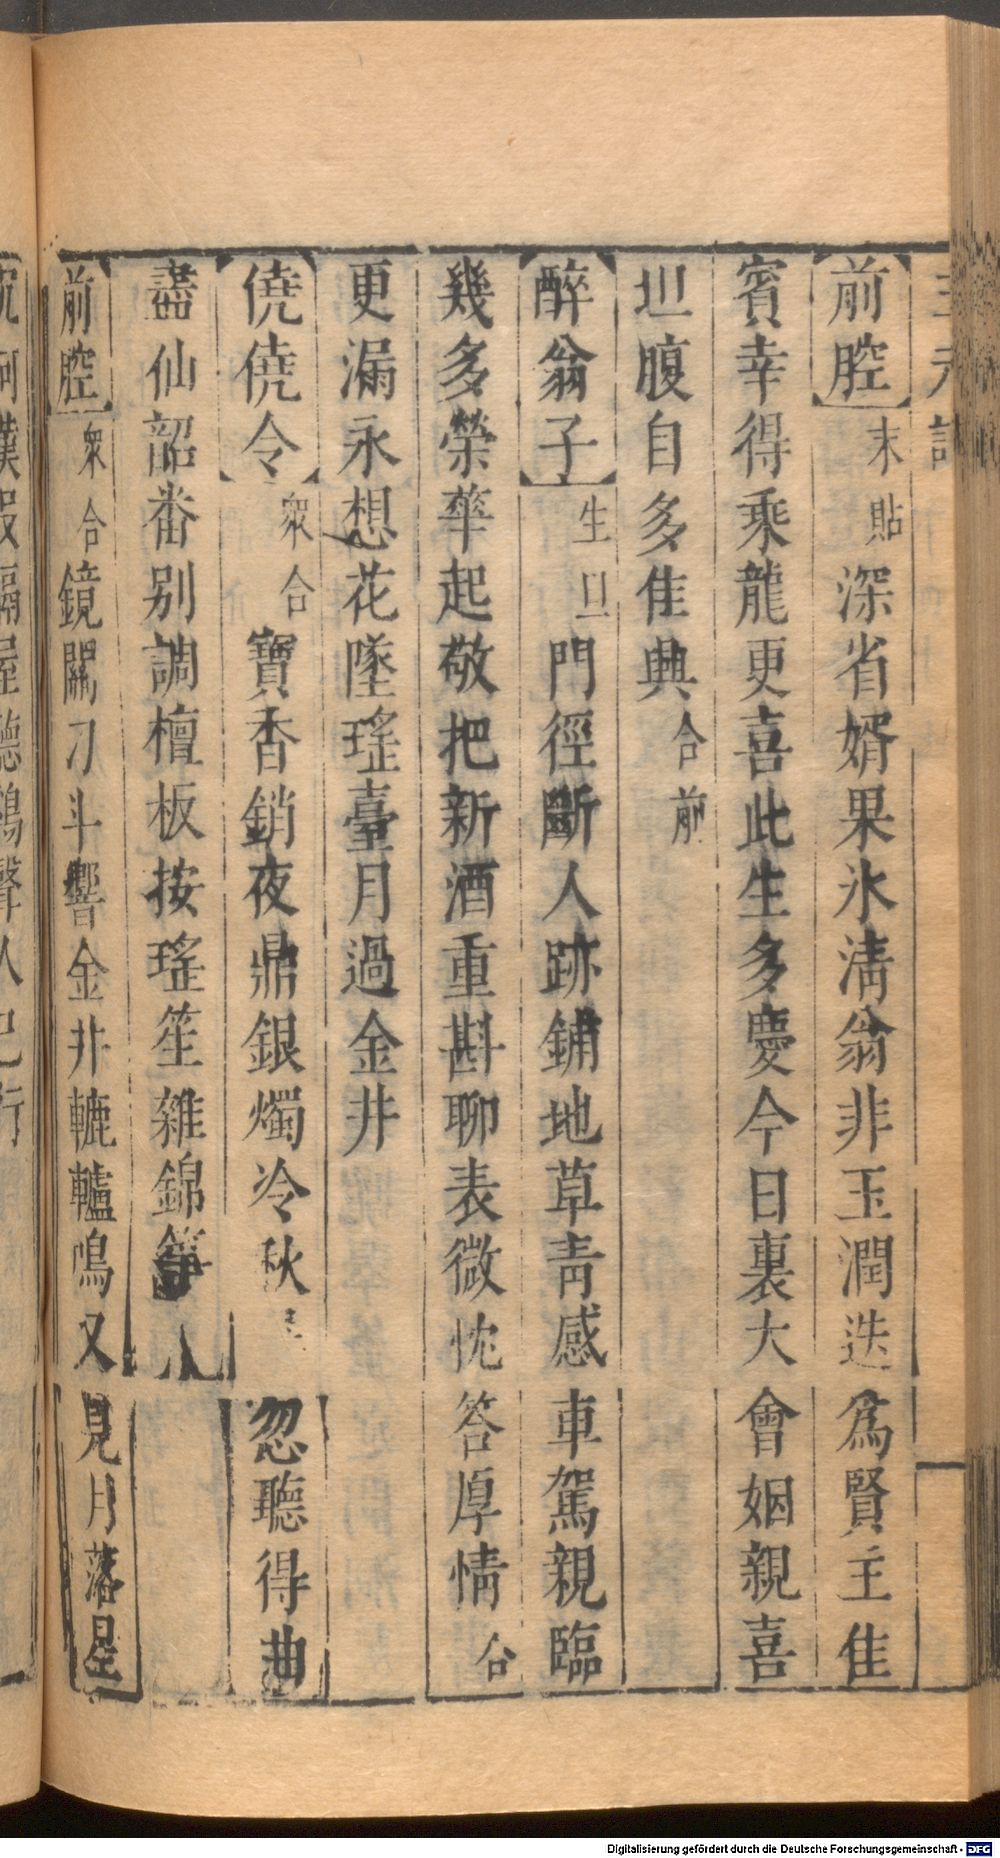 三元記
【前腔】末貼深省婿果氷淸翁非玉潤迭爲賢主隹
賓幸得乘龍更喜此生多慶今日裏大會姻親喜
坦腹自多隹典合前
【醉翁子】生旦門徑斷人跡鋪地草靑感車駕親臨
幾多榮華起敬把新酒重斟聊表微忱答厚情合
更漏永想花墜瑤臺月過金井
【僥僥令】衆合寶香銷夜鼎銀燭冷秋忽聽得曲
盡仙韶畨别調檀板按瑤笙雜錦箏
【前腔】衆合鏡關刁斗響金井轆轤鳴又見月落星
Digitalisierung gefördert durch die Deutsche Forschungsgemeinschaft - DFG